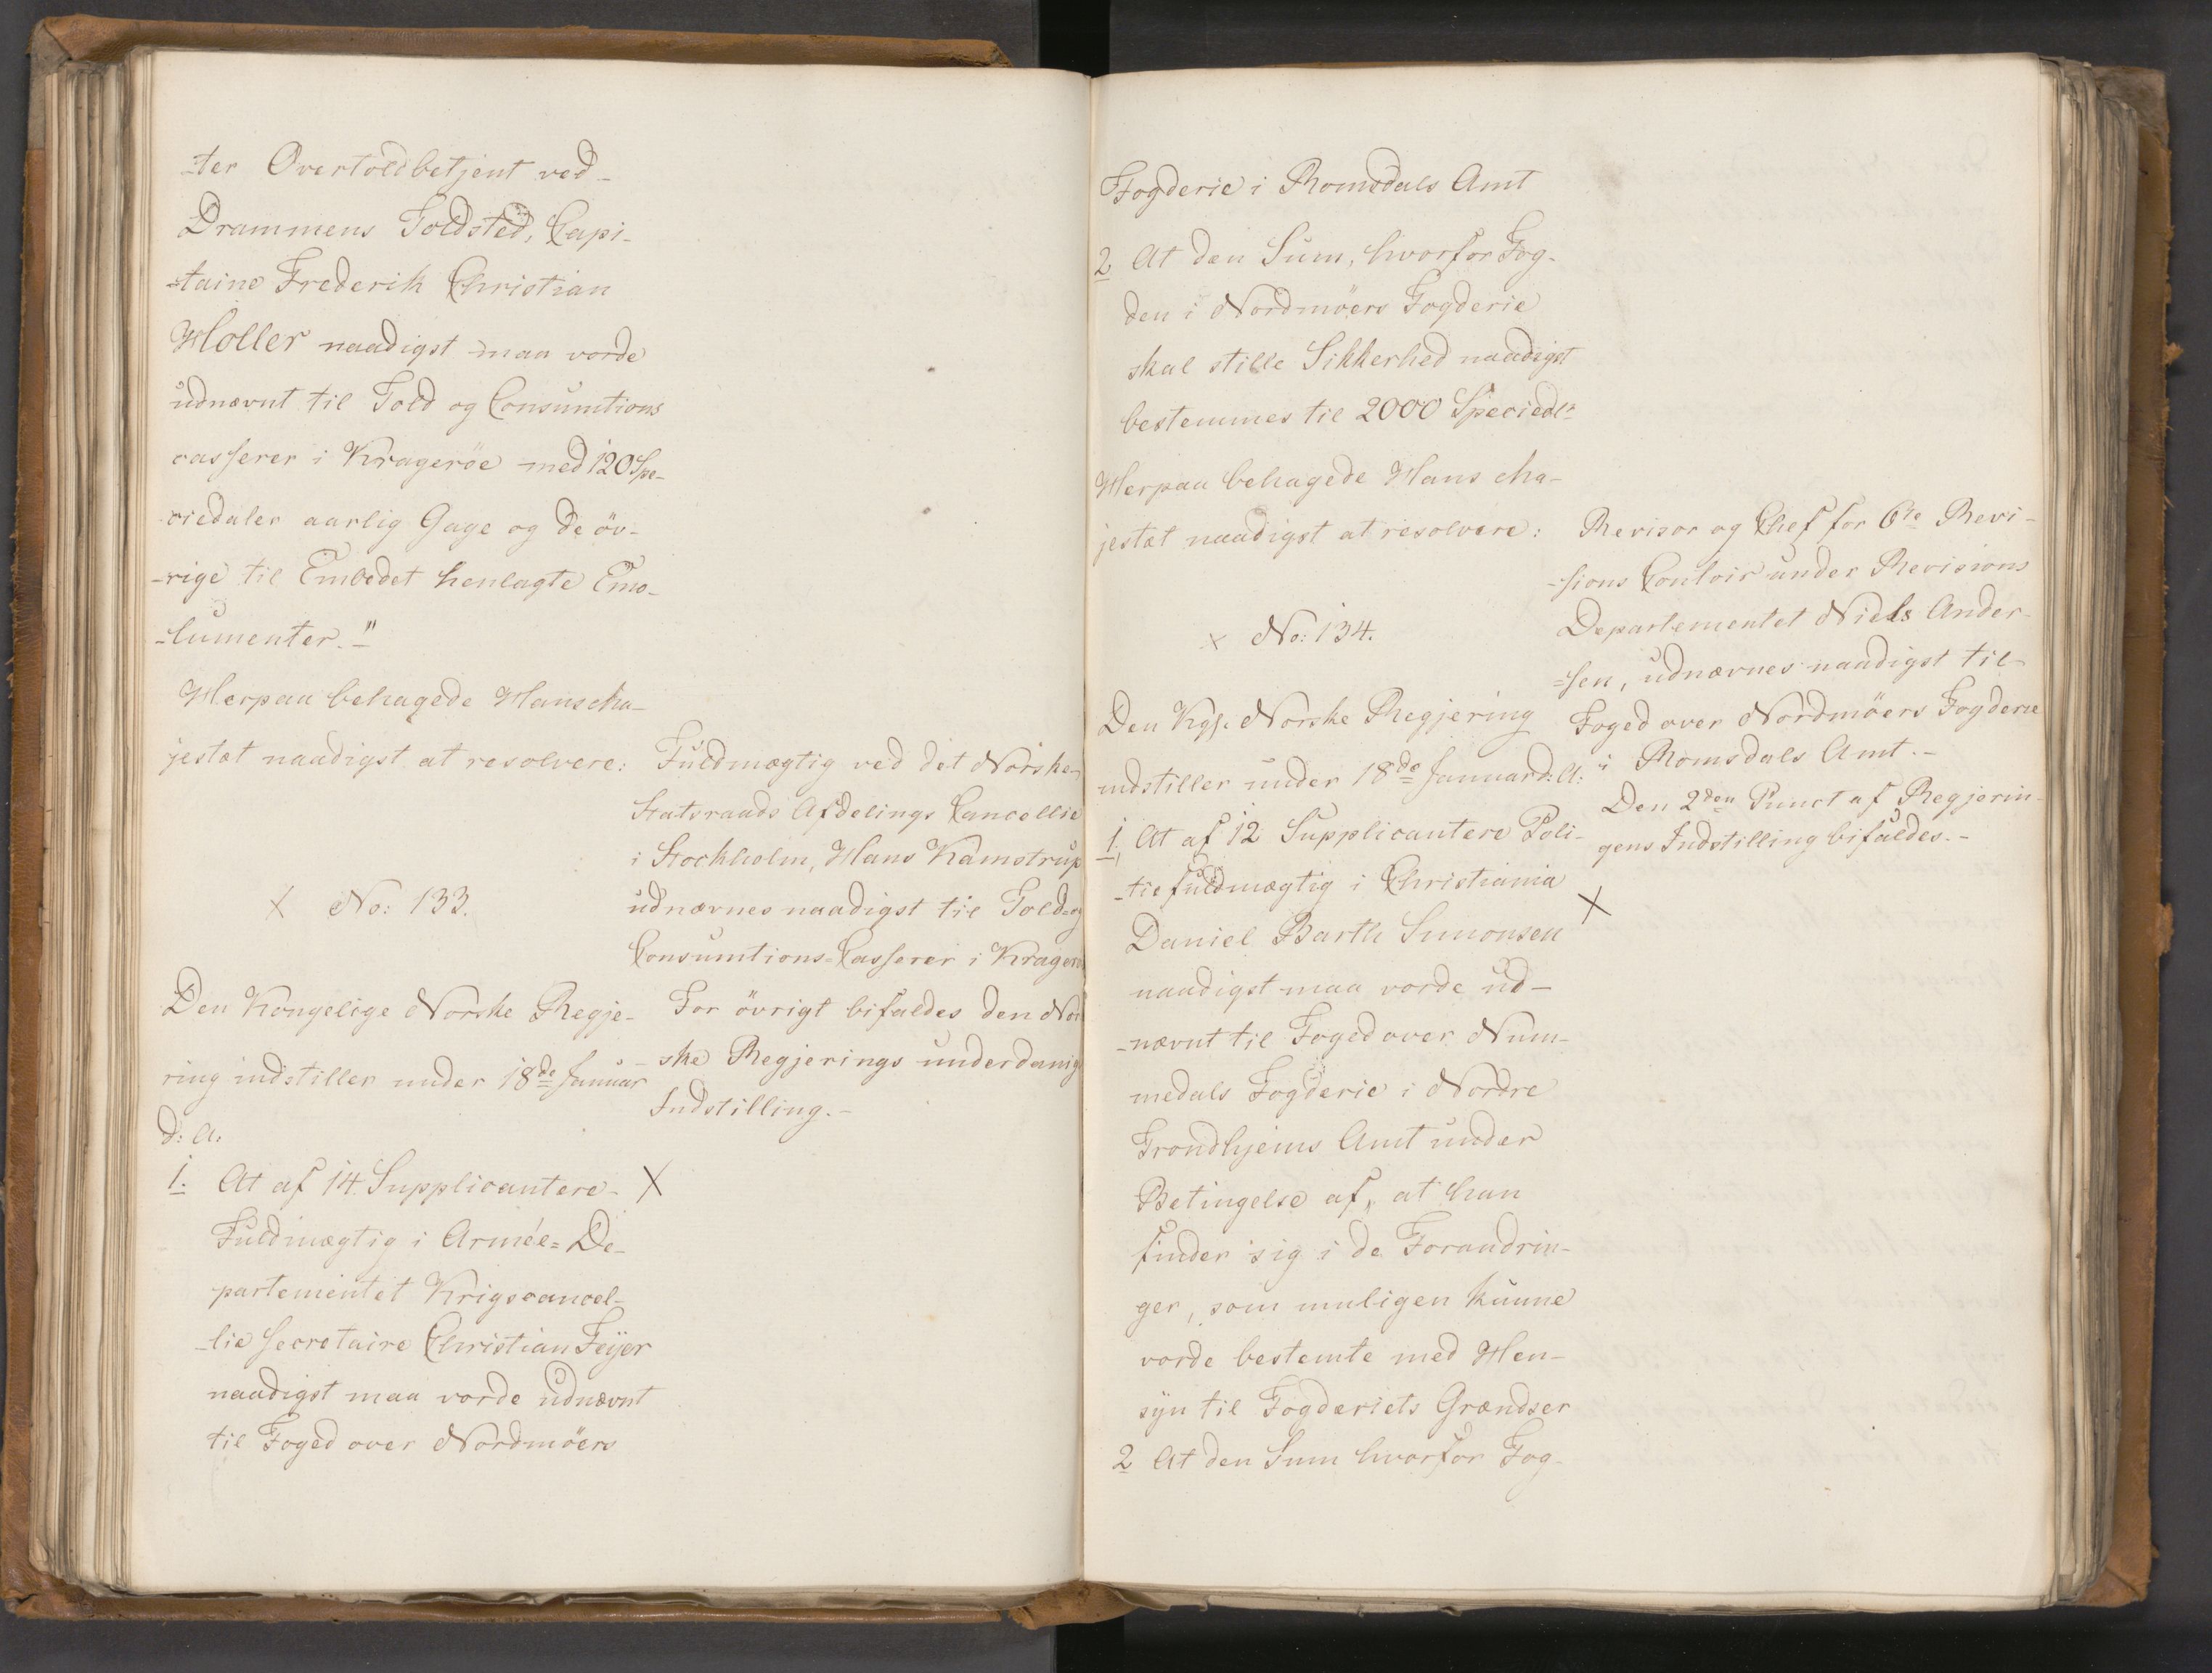 -ter Overtoldbetjent ved-
Drammens Toldsted, Capi-
-taine Frederik Christian
Holler naadigst maa vorde
udnævnt til Told og Consumtions
casserer i Kragerøe med 120 Spe-
-ciedaler aarlig Gage og de öv-
-rige til Embedet henlagte Emo-
-lumenter."-
Herpaa behagede Hans Ma-
jestæt naadigst at resolvere:
Fuldmægtig ved det Norske
Statsraads Afdelings Cancellie
i Stockholm, Hans Kamstrup
udnævnes naadigst til Told-og
Consumtions=Casserer i Kragerö
For övrigt bifaldes den Nor
-ske Regjerings underdanig
Indstilling.-
X No: 133.
Den Kongelige Norske Regje-
ring indstiller under 18de Januar
d: A:
1. At af 14 Supplicantere- X
Fuldmægtig i Armée=De-
partementet Krigscancel-
-lie secretaire Christian Feyer
naadigst maa vorde udnævnt
til Foged over Nordmöers
Fogderie i Romsdals Amt
2 At den Sum, hvorfor Fog-
den i Nordmöers Fogderie
skal stille Sikkerhed naadigst
bestemmes til 2000 Speciedlr
Herpaa behagede Hans Ma-
jestæt naadigst at resolvere:
Revisor og Chef for 6te Revi-
-sions Contoir under Revisions
Departementet Niels Ander-
=sen, udnævnes naadigst til
Foged over Nordmöers Fogderie
i Romsdals Amt.-
Den 2den Punct af Regjerin-
gens Indstilling bifaldes.-
x No: 134.
Den Kgl. Norske Regjering
indstiller under 18de Januar d: A:
1, At af 12 Supplicantere Poli-
-tiefuldmægtig i Christiania X
Daniel Barth Simonsen
naadigst maa vorde ud-
-nævnt til Foged over Num-
medals Fogderie i Nordre
Trondhjems Amt under
Betingelse af, at han
finder sig i de Forandrin-
ger, som muligen kunne
vorde bestemte med Hen-
syn til Fogderiets Grændser
2 At den Sum hvorfor Fog-